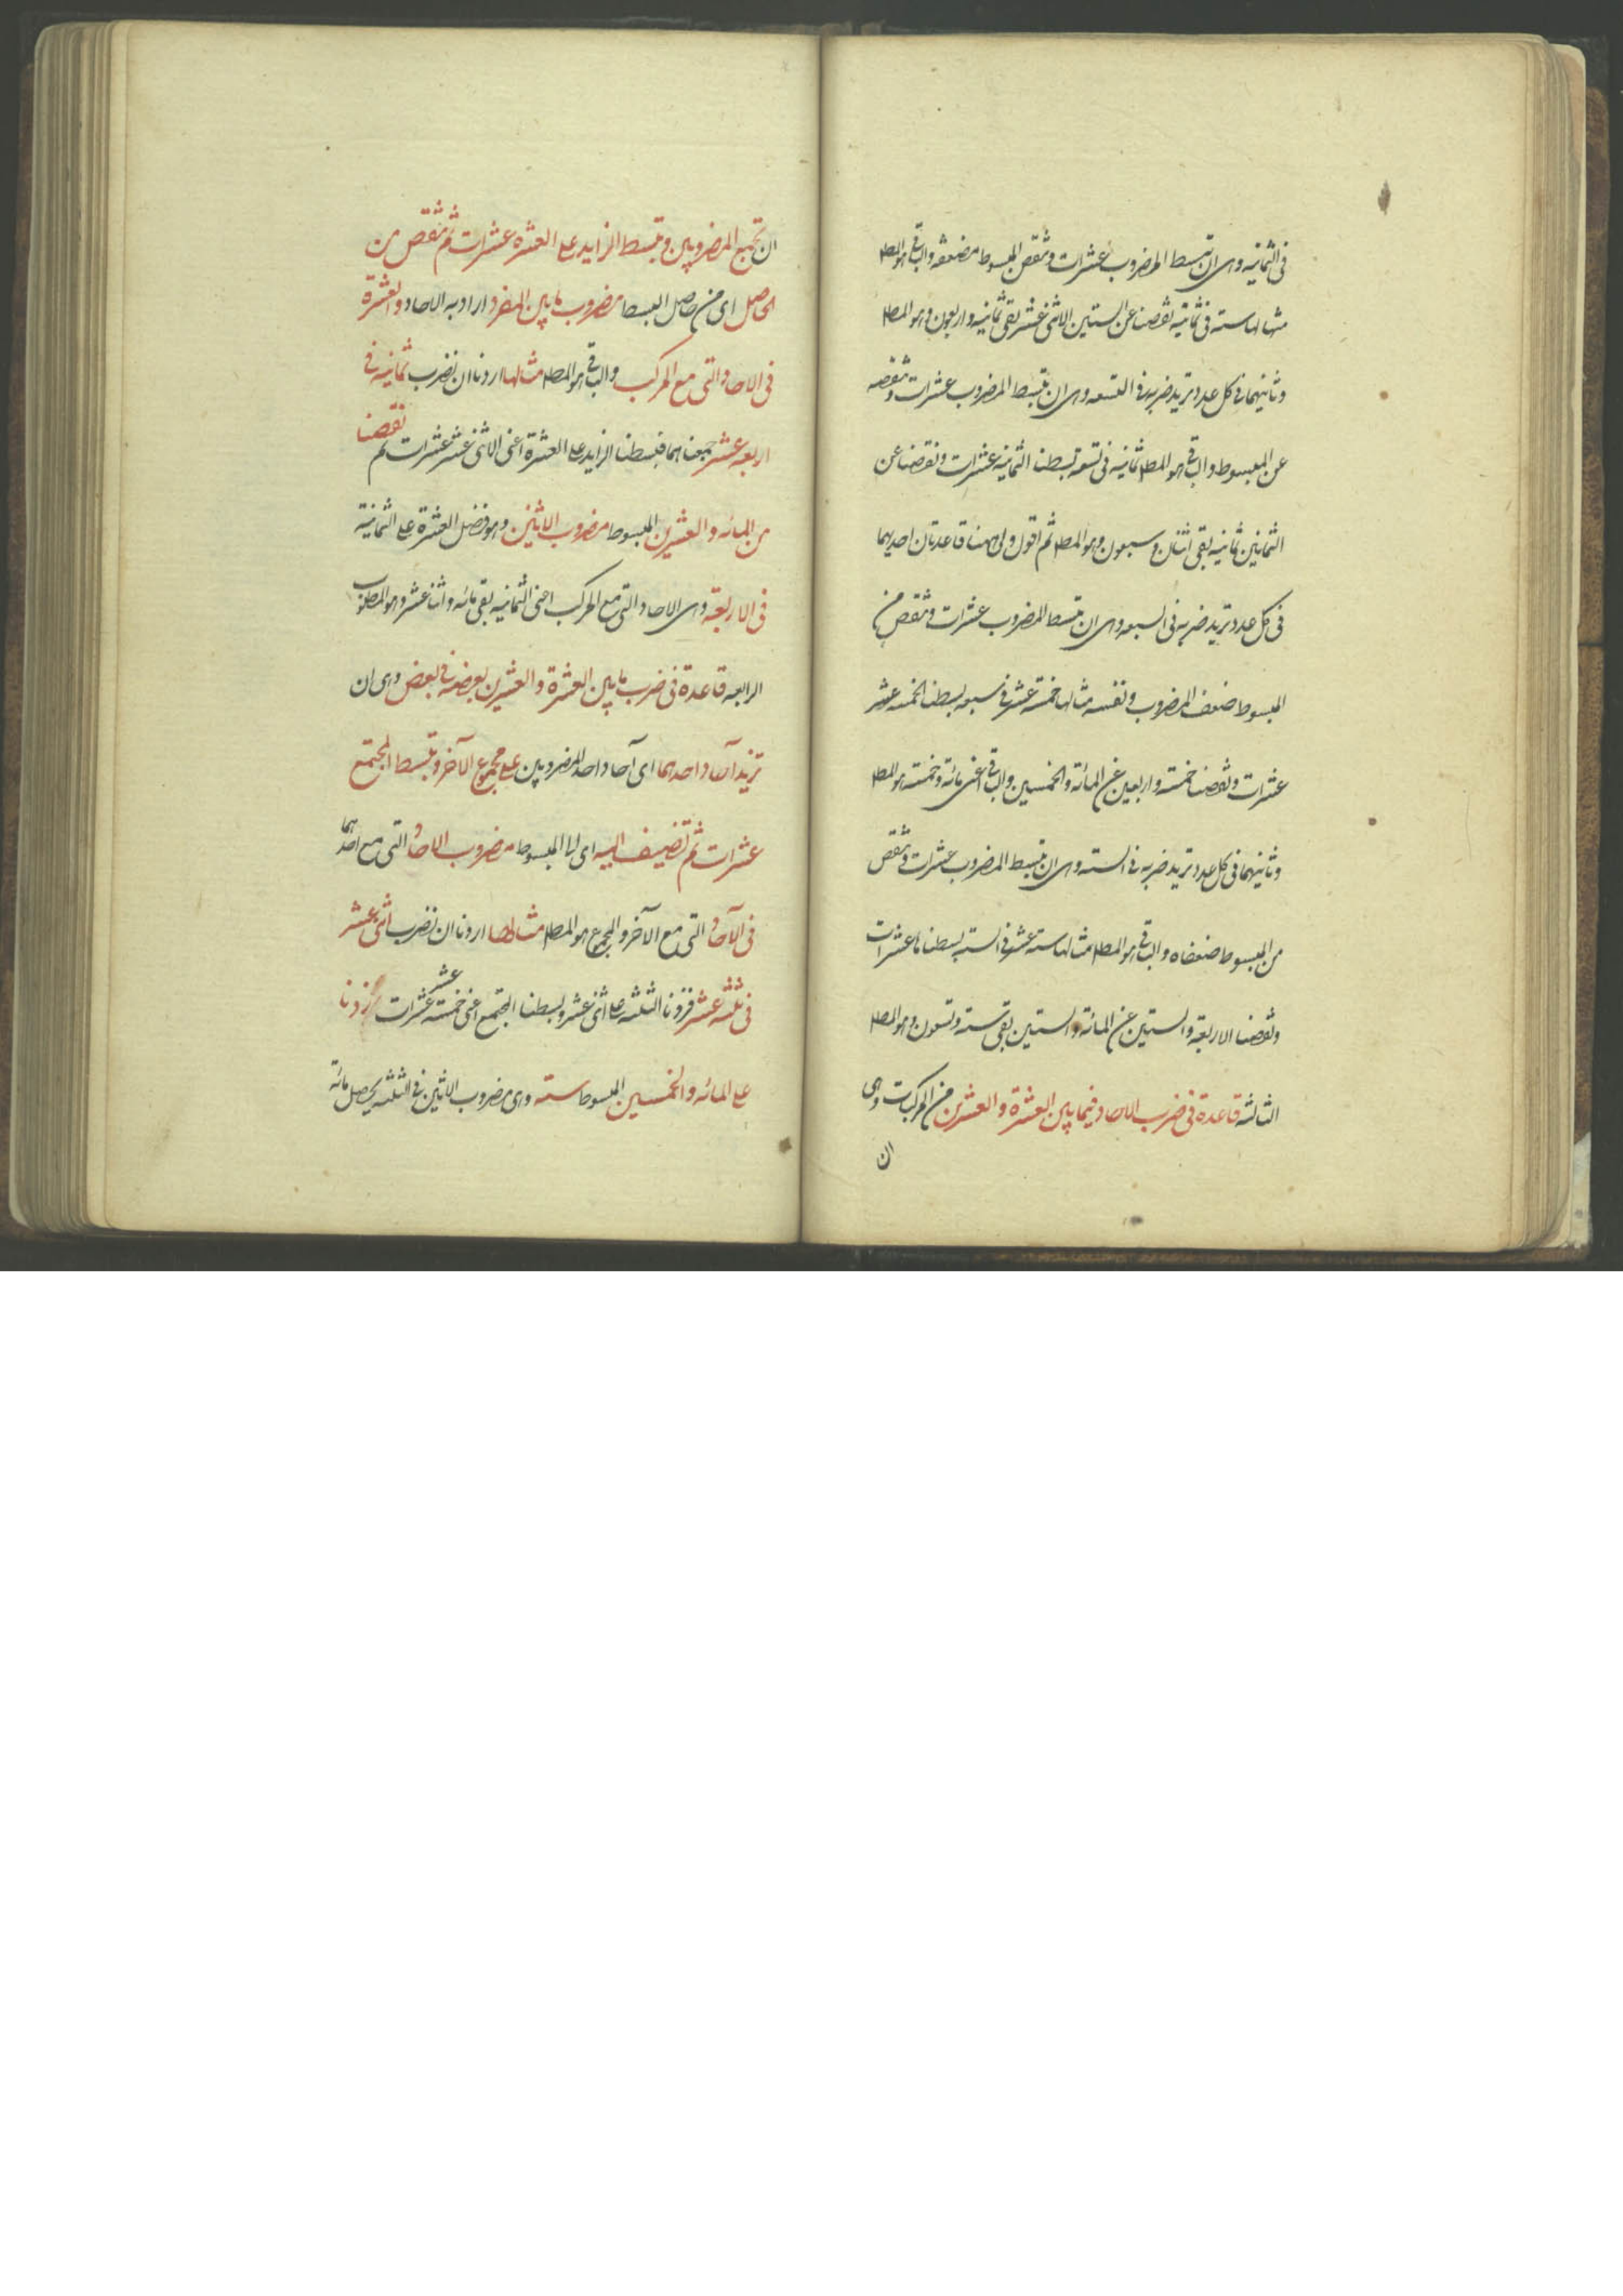 فى الثمانيه وهى ان تبسط المضروب عشرات وتنقص المبسوط من ضعفه والباقى هو المط
مثالها سته فى ثمانيه نقصنا عن الستين الاثنى عشر بقى ثمانيه واربعون وهو المط
وثانيهما فى كل عدد تريد ضربه فى التسعه وهى ان تبسط المضروب عشرات وتنقصه
عن المبسوط والباقى هو المط ثمانيه فى تسعه بسطنا الثمانيه عشرات ونقصنا عن
الثمانين ثمانيه بقى اثنان وسبعون وهو المط ثم اقول ولى ههنا قاعدتان احديهما
فى كل عدد تريد ضربه فى السبعه وهى ان تبسط المضروب عشرات وتنقص من
المبسوط ضعف المضروب ونفسه مثالها خمسة عشر فى سبعه بسطنا الخمسه عشر
عشرات ونقصنا خمسته واربعين عن المائة والخمسين والباقى اعنى مائة وخمسته هو المط
وثانيهما فى كل عدد تريد ضربه فى السته وهى ان تبسط المضروب عشرات وتنقص
من المبسوط ضعفاه والباقى هو المط مثالها سته عشر فى السته بسطناها عشرات
ونقصنا الاربعة والستين عن المائة والستين بقى سته وتسعون وهو المط
الثالثه قاعدة فى ضرب الاحاد فيما بين العشرة والعشرين من المركبات وهى
ان
ان تجمع المضروبين وتبسط الزايد على العشره عشرات ثم تنقص من
الحاصل اى من حاصل البسط مضروب ما بين المفرد اراد به الاحاد والعشرة
فى الاحاد التى مع المركب والباقى هو المط مثالها اردنا ان نضرب ثمانيه فى
اربعه عشر جمعناهما فبسطنا الزايد على العشرة اعنى الاثنى عشر عشرات ثم نقصنا
من المائه والعشرين المبسوط مضروب الاثنين وهو فضل العشرة على الثمانية
فى الاربعة وهى الاحاد التى مع المركب اعنى الثمانيه بقى مائه واثنا عشر وهو المطلوب
الرابعه قاعدة فى ضرب ما بين العشرة والعشرين بعضه فى بعض وهى ان
تزيد آحاد احدهما اى آحاد احد المضروبين على مجموع الآخر وتبسط المجتمع
عشرات ثم تضيف اليه اى الى المبسوط مضروب الاحاد التى مع احدهما
فى الآحاد التى مع الآخر والمجموع هو المط مثالها اردنا ان نضرب اثنى عشر
فى ثلثة عشر فزدنا الثلثه على اثنى عشر وبسطنا المجتمع اعنى خمسة عشر عشرات زدنا
على المائه والخمسين المبسوط سته وهى مضروب الاثنين فى الثلثه يحصل مائة